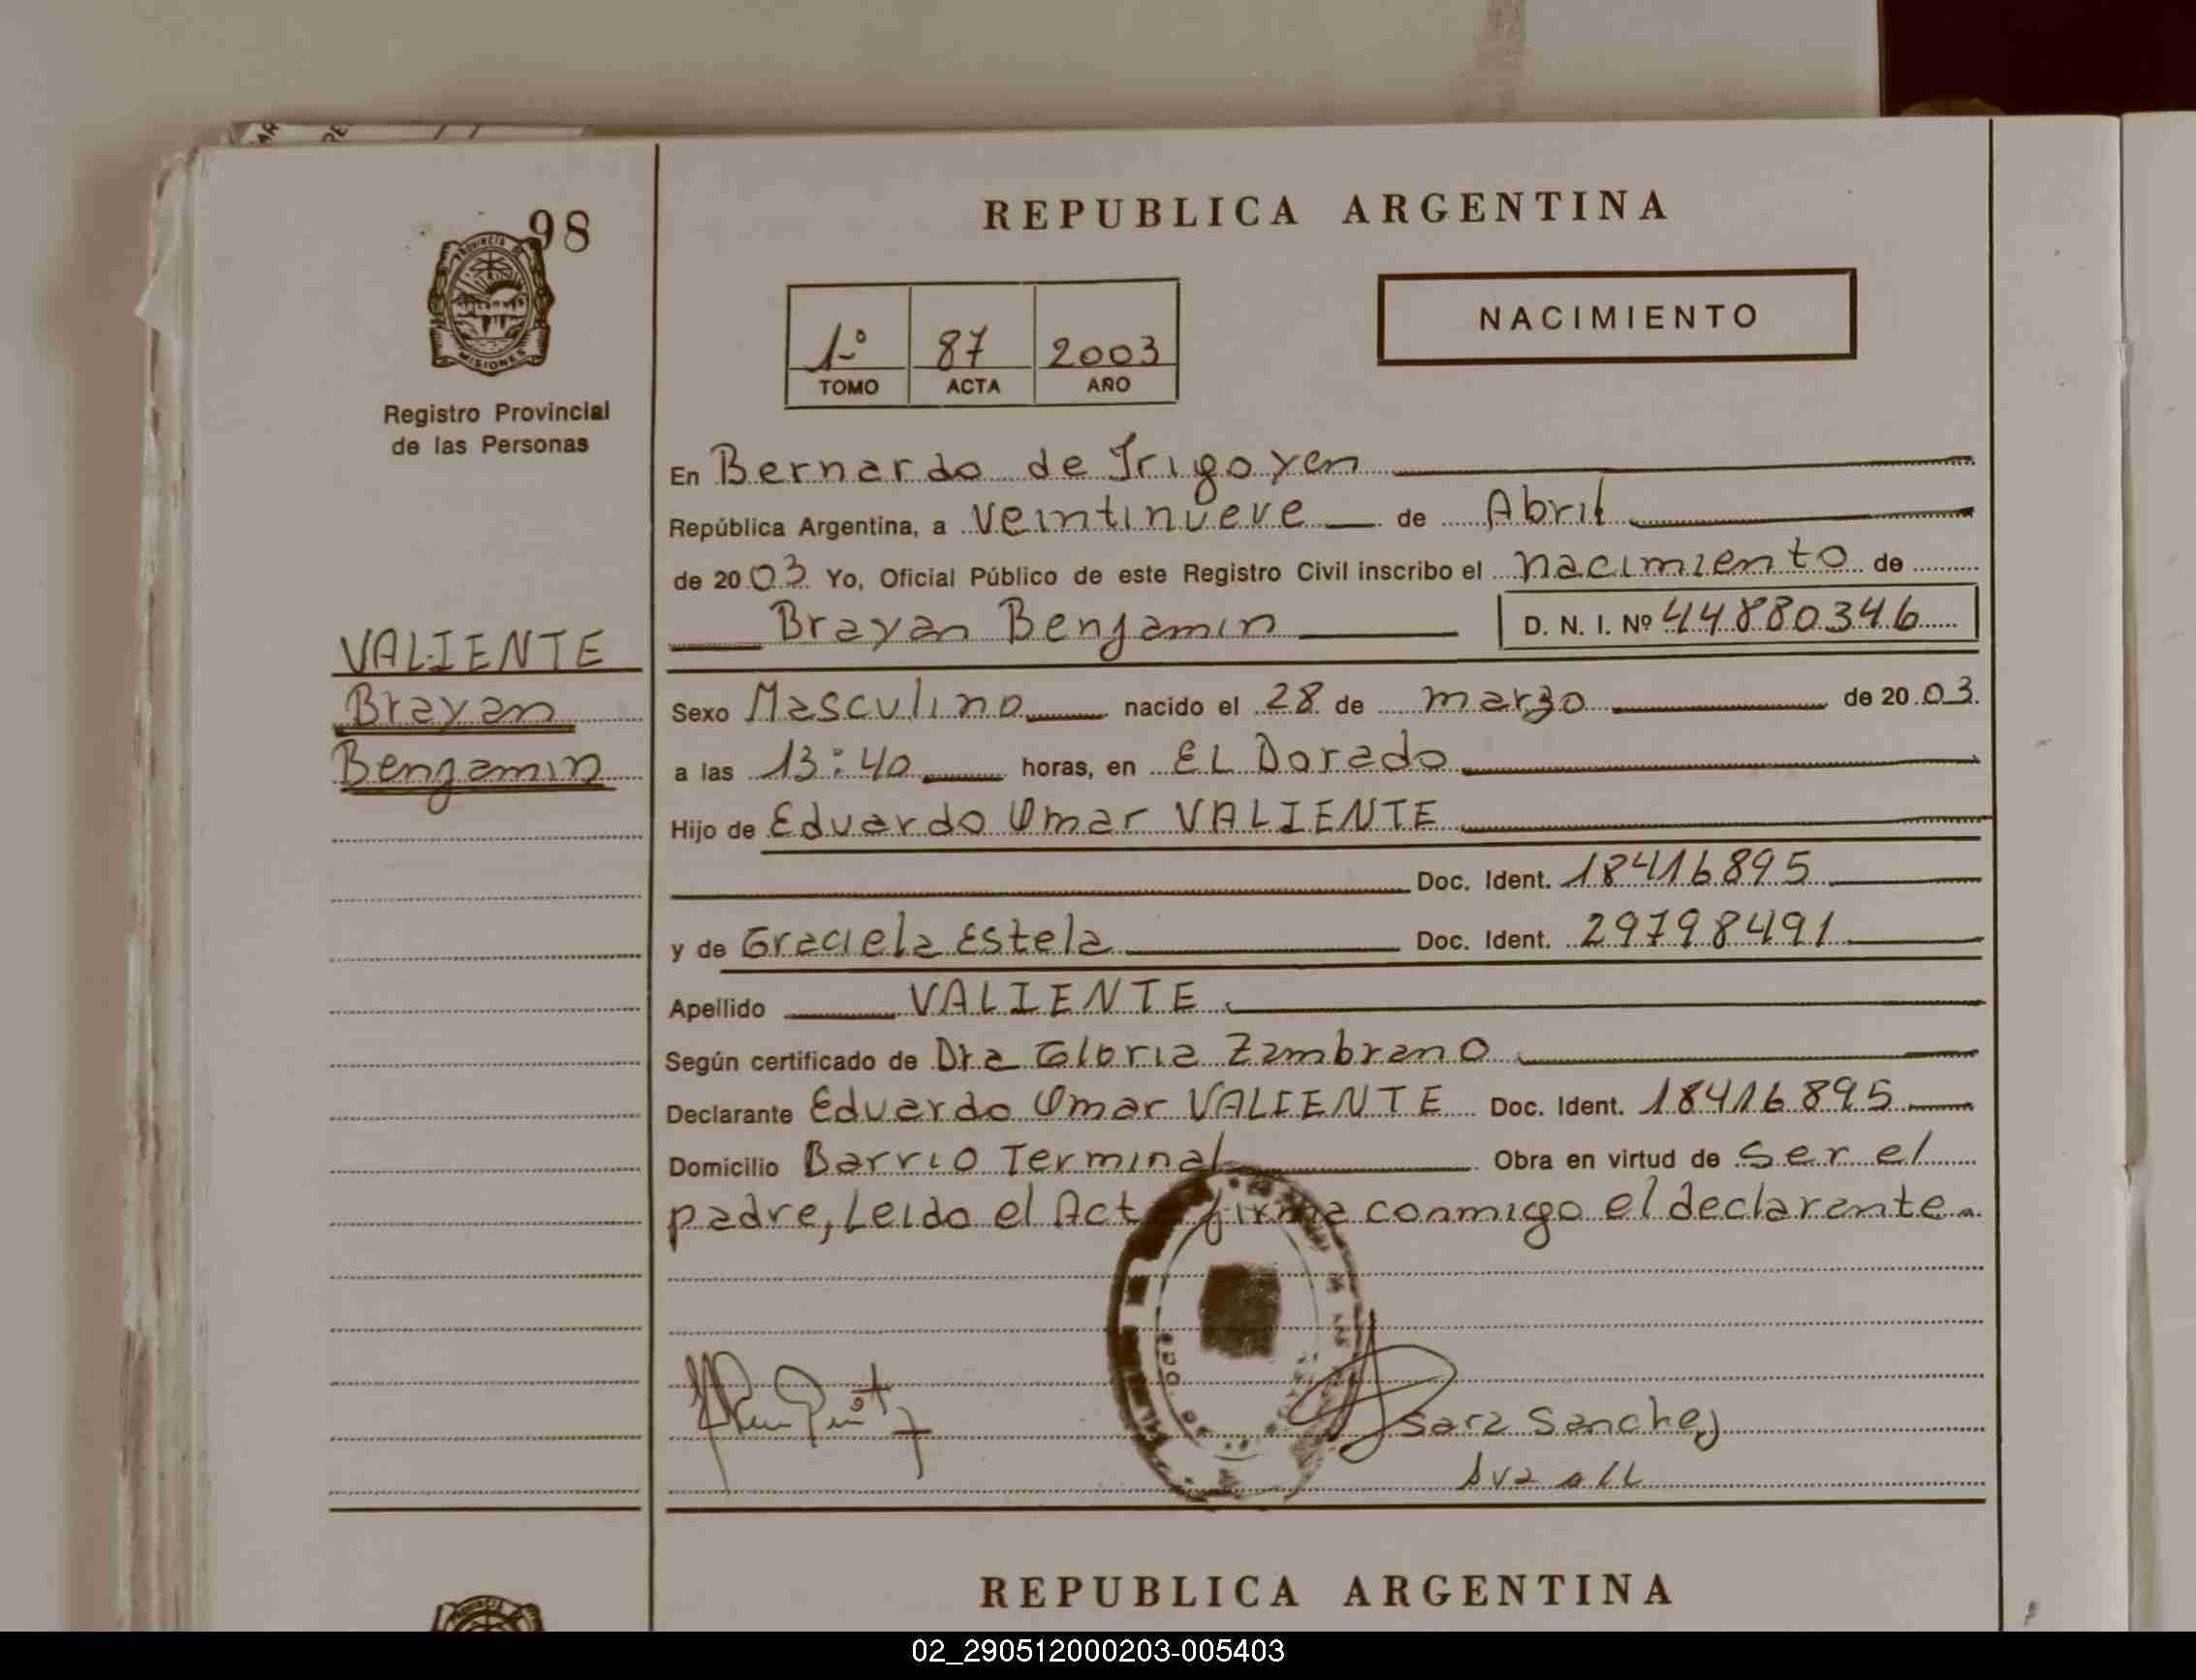 98
PROVINCIA DE
MISIONES
Registro Provincial
de las Personas
VALIENTE
Brayan
Benjamin
REPUBLICA ARGENTINA
1º 87 2003
TOMO ACTA AÑO
NACIMIENTO
En Bernardo de Irigoyen
República Argentina, a veintinueve de Abril
de 2003 Yo, Oficial Público de este Registro Civil inscribo el nacimiento de
Brayan Benjamin D. N. I. Nº 44880346
Sexo Masculino nacido el 28 de marzo de 2003.
a las 13:40 horas, en EL Dorado
Hijo de Eduardo Omar VALIENTE
Doc. Ident. 18416895
y de Graciela Estela Doc. Ident. 29798491
Apellido VALIENTE
Según certificado de Dra Gloria Zambrano
Declarante Eduardo Omar VALIENTE Doc. Ident. 18416895
Domicilio Barrio Terminal Obra en virtud de ser el
padre, Leido el Act firma conmigo el declarante.
Sara Sanchez
REPUBLICA ARGENTINA
02_290512000203-005403